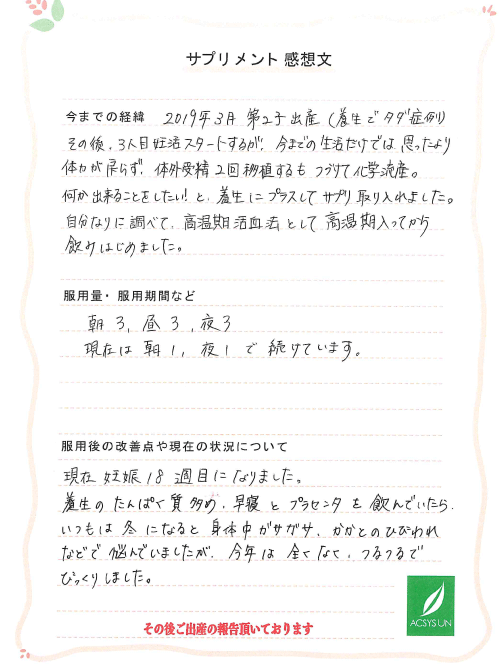 サプリメント感想文
今までの経緯 2019年3月 第2子出産（養生でタダ症例）
その後、3人目妊活スタートするが、今までの生活だけでは思ったより
体力が戻らず、体外受精2回移植するもつづけて化学流産。
何か出来ることをしたい!と、養生にプラスしてサプリ取り入れました。
自分なりに調べて、高温期活血法として高温期入ってから
飲みはじめました。
服用量・服用期間など
朝3、昼3、夜3
現在は朝1、夜1で続けています。
服用後の改善点や現在の状況について
現在妊娠18週目になりました。
養生のたんぱく質多め、早寝とプラセンタを飲んでいたら、
いつもは冬になると身体中ガサガサ、かかとのひびわれ
などで悩んでいましたが、今年は全くなく、つるつるで
びっくりしました。
その後ご出産の報告頂いております
ACSYSUN